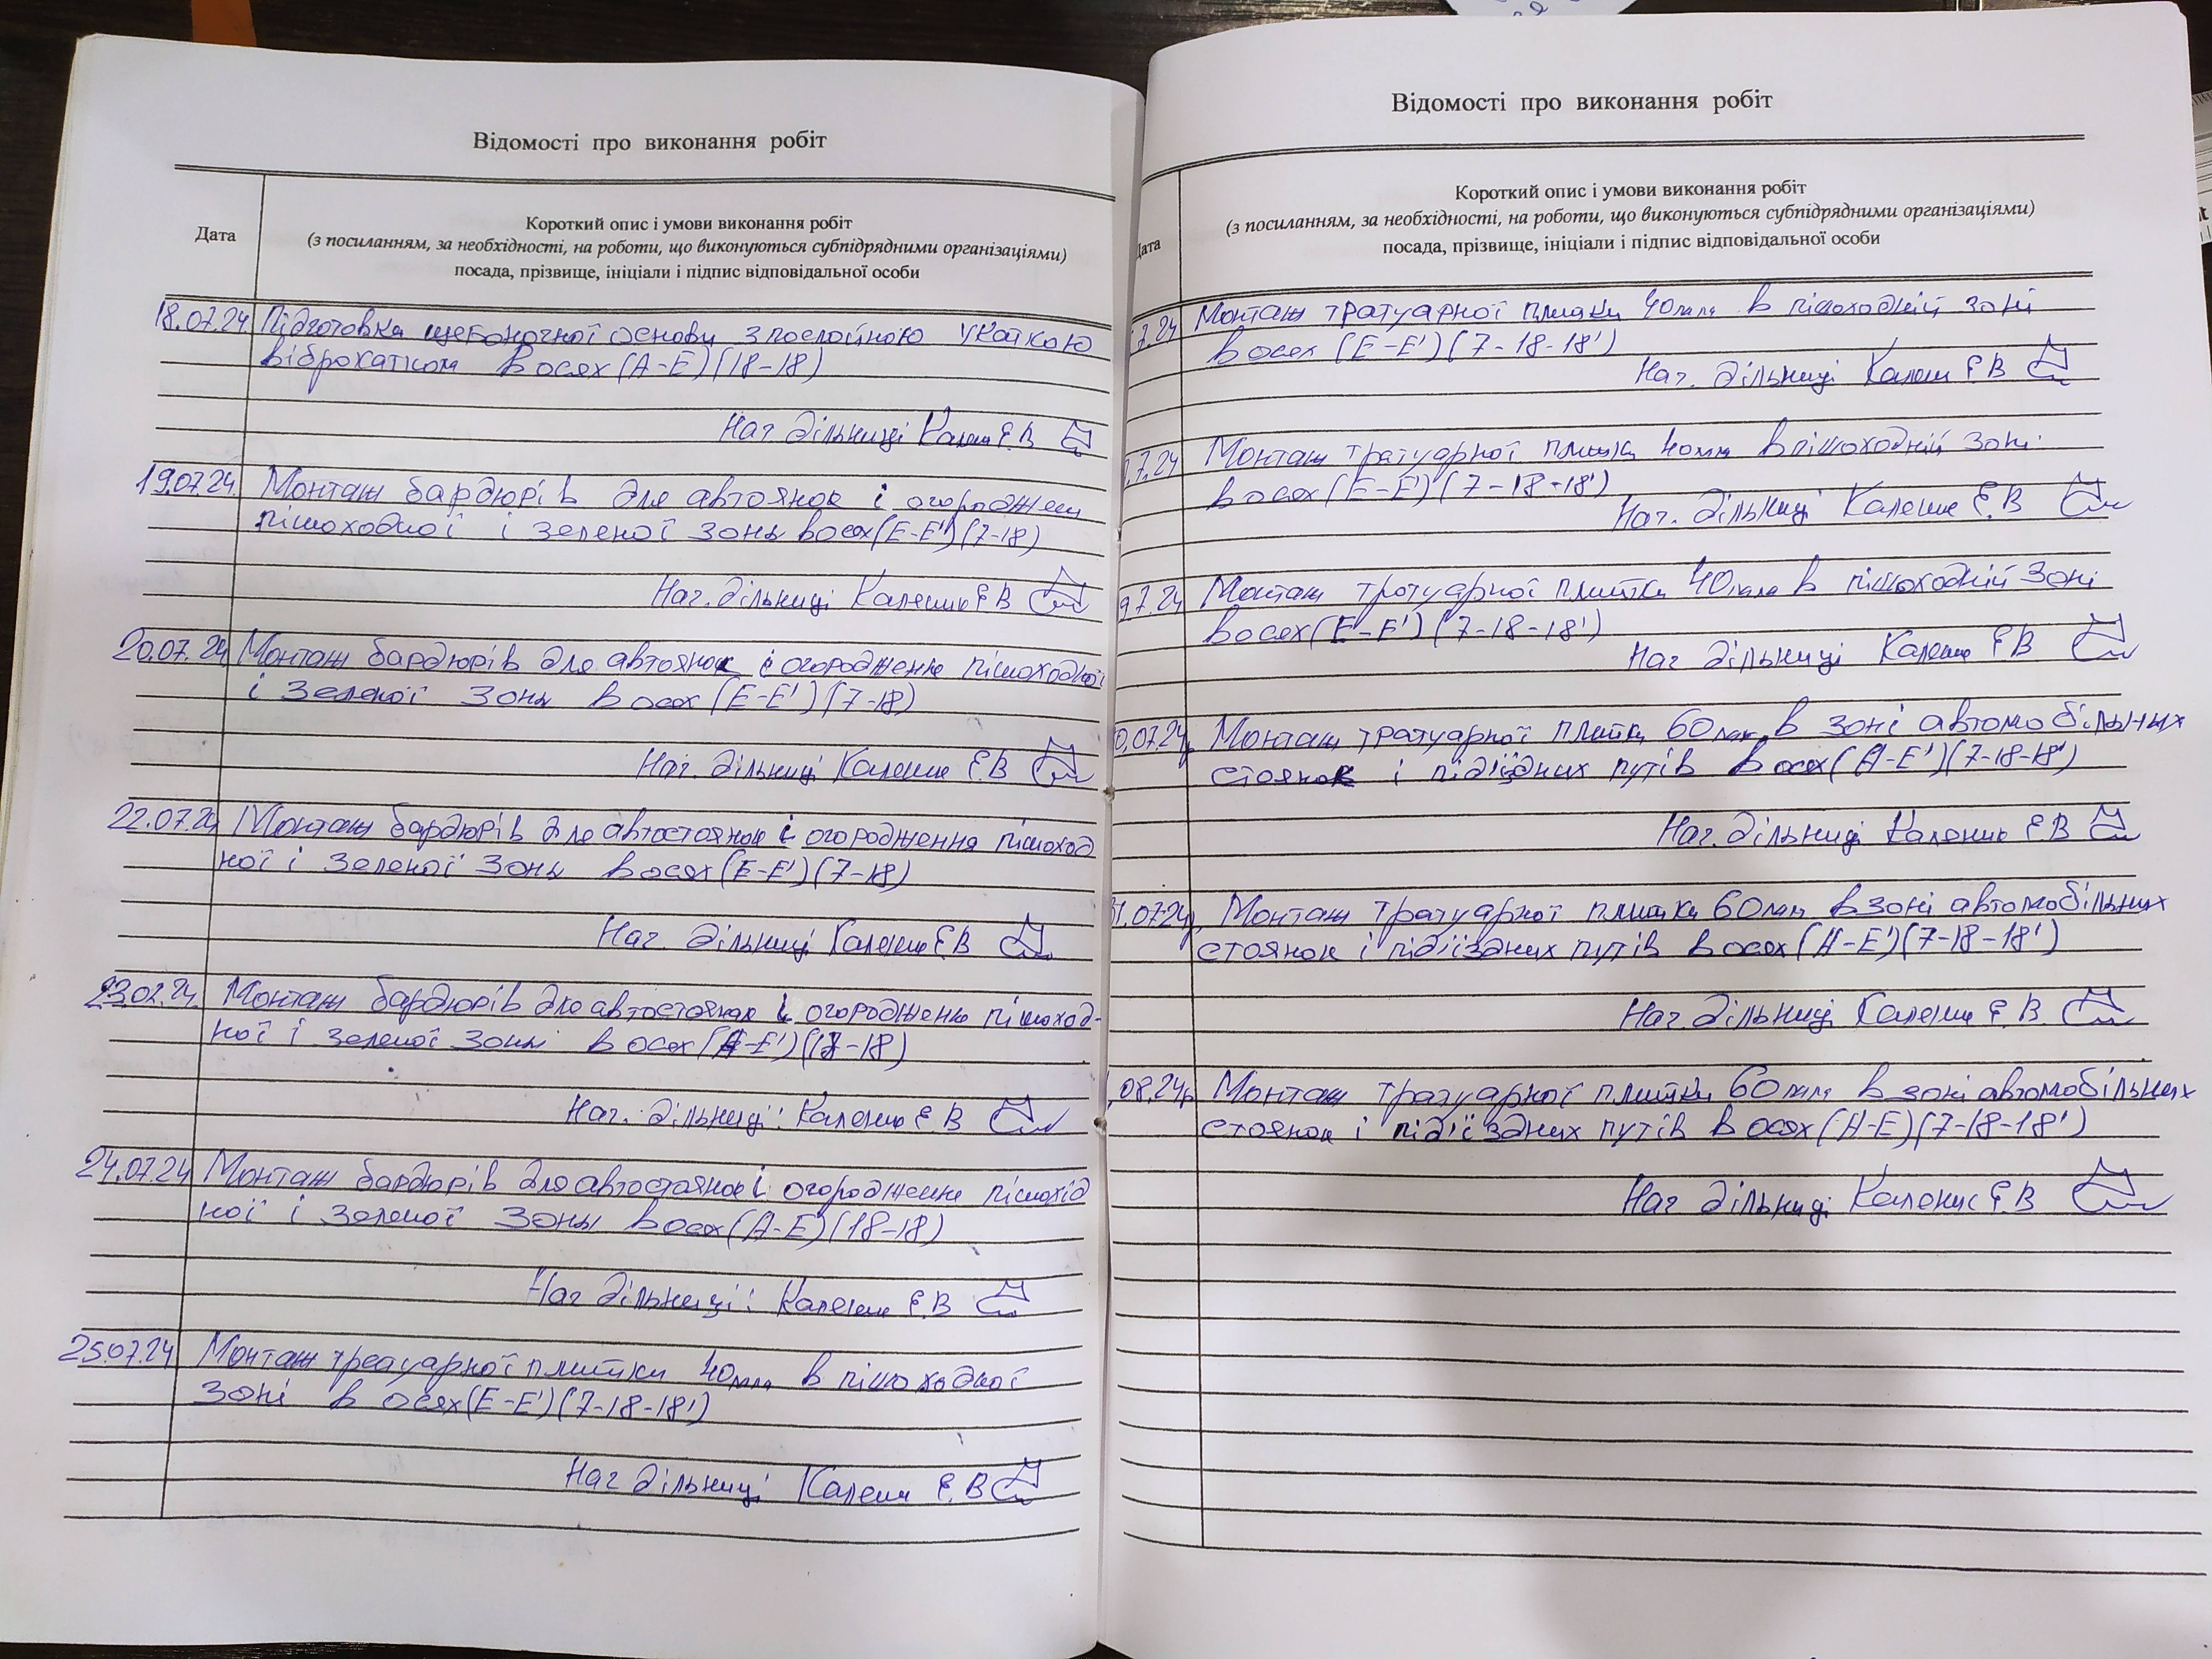 Відомості про виконання робіт
Дата
Короткий опис і умови виконання робіт
(з посиланням, за необхідності, на роботи, що виконуються субпідрядними організаціями)
посада, прізвище, ініціали і підпис відповідальної особи
18.07.24 Підготовка щебоночної основи з послойною укаткою
віброкатком в осях (А-Е)(18-18)
Нач дільниці Каленик Е В
19.07.24 Монтаж бардюрів для автоянок і огороджен
пішоходної і зеленої зони в осях (Е-Е')(7-18)
Нач. дільниці Каленик Е В
20.07.24 Монтаж бардюрів для автоянок і огородженю пішоходної
і зеленої зони в осях (Е-Е')(7-18)
Нач. дільниці Каленик Е.В
22.07.24 Монтаж бардюрів для автостоянок і огородження пішоход
ної і зеленої зони в осях (Е-Е')(7-18)
Нач. дільниці Каленик Е.В
23.02.24. Монтаж бардюрів для автостоянок і огородженю пішоход-
ної і зеленої зони в осях (А-Е')(17-18)
Нач. дільниці: Каленик Е В
24.07.24 Монтаж бардюрів для автостоянок і огородженне пішохід
ної і зеленої зони в осях (А-Е)(18-18)
Нач дільниці: Каленик Е.В
25.07.24 Монтаж тротуарної плитки 40мм в пішоходної
зоні в осях (Е-Е')(7-18-18')
Нач дільниці Каленик Е.В
Відомості про виконання робіт
ата
Короткий опис і умови виконання робіт
(з посиланням, за необхідності, на роботи, що виконуються субпідрядними організаціями)
посада, прізвище, ініціали і підпис відповідальної особи
7.24 Монтаж тратуарної плитки 40мм в пішоходній зоні
в осях (Е-Е')(7-18-18')
Нач. дільниці Каленик Е В
.7.24 Монтаж тратуарної плитки 40мм в пішоходній зоні
в осях (Е-Е')(7-18-18')
Нач. дільниці Каленик Е.В
9.7.24 Монтаж тротуарної плитки 40мм в пішоходній зоні
в осях (Е-Е')(7-18-18')
Нач дільниці Каленик Е В
0.07.24р Монтаж тратуарної плитки 60мм в зоні автомобільних
стоянок і під'їздних путів в осях (А-Е')(7-18-18')
Нач. дільниці Каленик Е.В
1.07.24р. Монтаж тратуарної плитки 60мм в зоні автомобільних
стоянок і під'їздних путів в осях (А-Е')(7-18-18')
Нач. дільниці Каленик Е.В.
.08.24р Монтаж тратуарної плитки 60мм в зоні автомобільних
стоянок і під'їздних путів в осях (А-Е)(7-18-18')
Нач дільниці Каленик Е.В